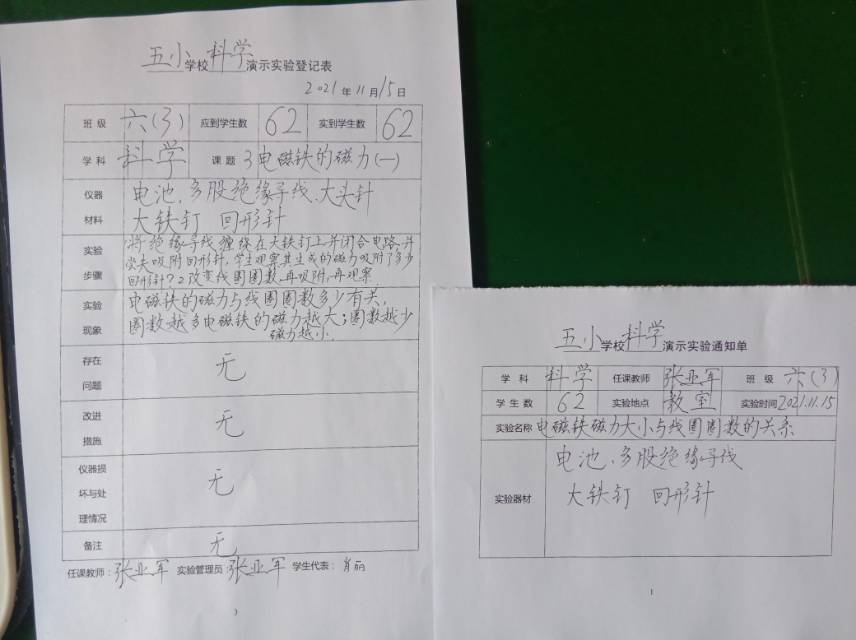 五小学校科学演示实验登记表
2021年11月15日
班级 六(3) 应到学生数 62 实到学生数 62
学科 科学 课题 3电磁铁的磁力(一)
仪器材料 电池、多股绝缘导线、大头针
大铁钉 回形针
实验步骤 将绝缘导线缠绕在大铁钉上并闭合电路,并
尝失吸附回形针,学生观察其生成的磁力吸附了多少
回形针?2改变线圈圈数,再吸附,再观察
实验现象 电磁铁的磁力与线圈圈数多少有关,
圈数越多电磁铁的磁力越大;圈数越少
磁力越小.
存在问题 无
改进措施 无
仪器损坏与处理情况 无
备注 无
任课教师:张亚军 实验管理员:张亚军 学生代表:肖丽
3
五小学校科学演示实验通知单
学科 科学 任课教师 张亚军 班级 六(3)
学生数 62 实验地点 教室 实验时间 2021.11.15
实验名称 电磁铁磁力大小与线圈圈数的关系
实验器材 电池、多股绝缘导线
大铁钉 回形针
1